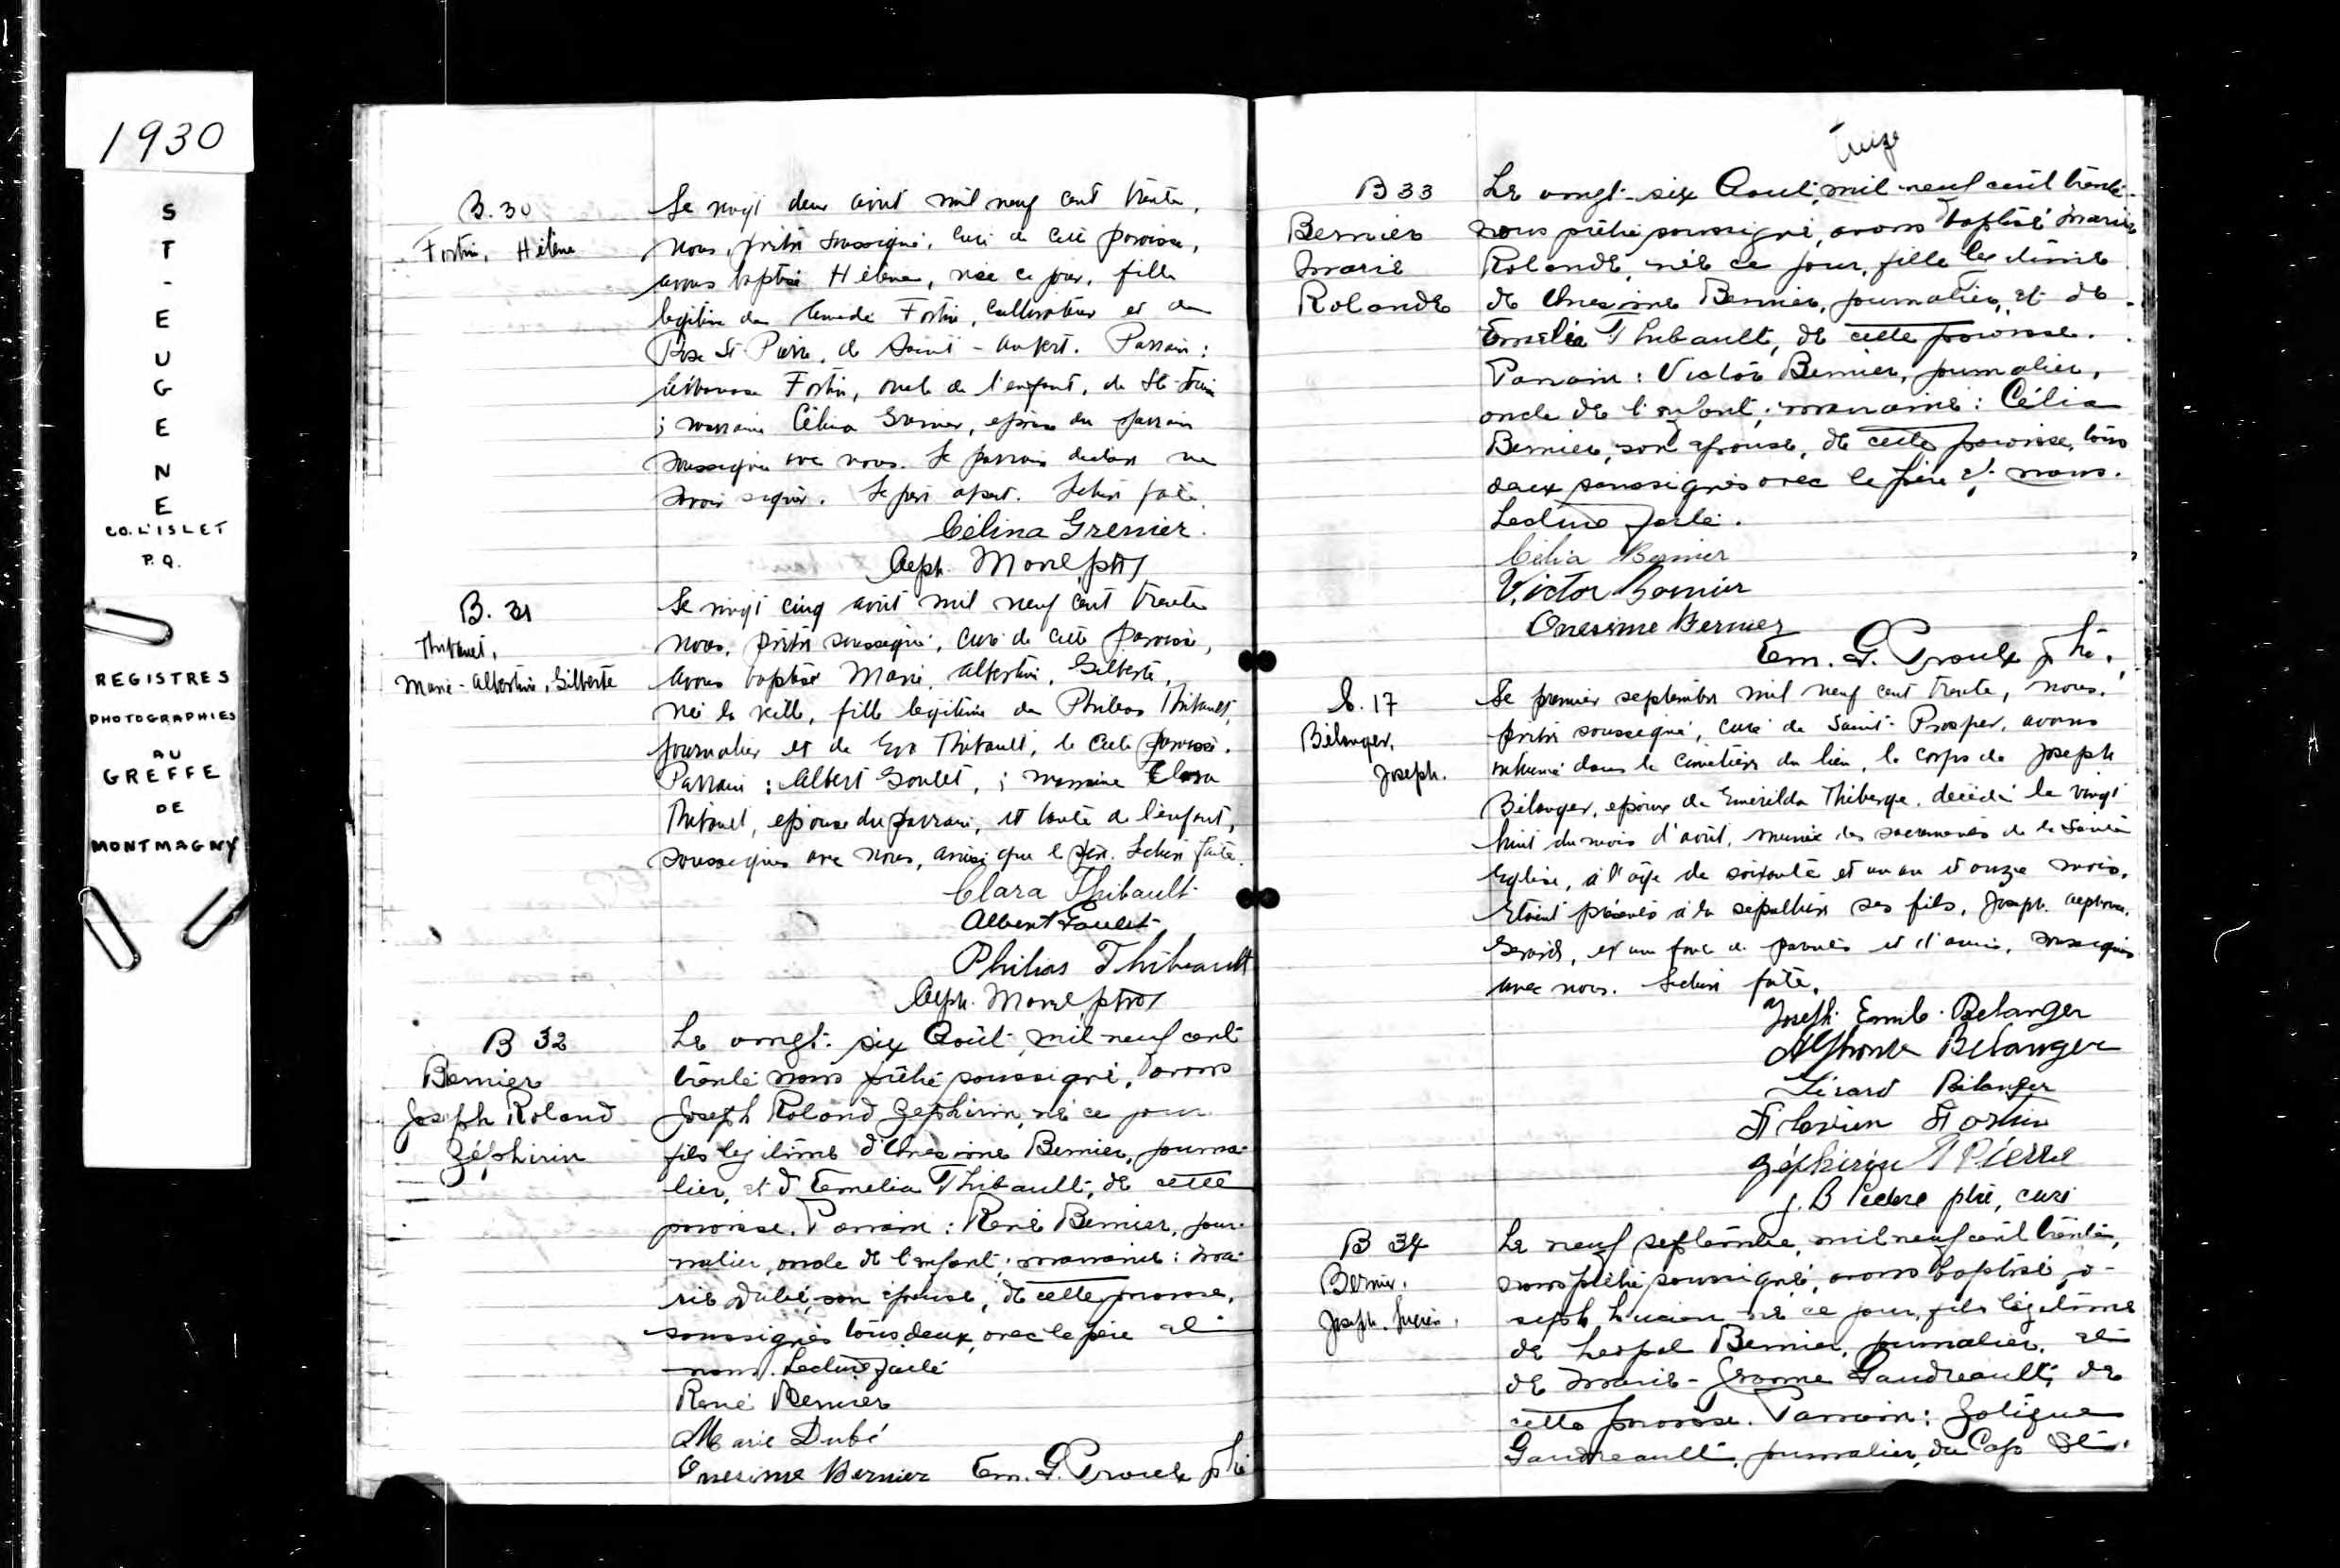 1930
S
T
-
E
U
G
E
N
E
CO. L'ISLET
P.Q.
REGISTRES
PHOTOGRAPHIES
AU
GREFFE
DE
MONTMAGNY
B. 30
Fortin, Hélène
Le vingt deux août mil neuf cent trente,
nous, prêtre soussigné, curé de cette paroisse,
avons baptisé Hélène, née ce jour, fille
légitime de Fortin, cultivateur et de
Rose St-Pierre, de Saint-Aubert. Parrain :
Fortin, oncle de l'enfant, de
; marraine Célina Grenier, épouse du parrain
soussignée avec nous. Le parrain déclare ne
savoir signer. Le père absent. Lecture faite.
Célina Grenier.
Alph. Morel ptre
B. 31
Thibault,
Marie-Albertine, Gilberte
Le vingt cinq août mil neuf cent trente
nous, prêtre soussigné, curé de cette paroisse,
avons baptisé Marie, Albertine, Gilberte,
née la veille, fille légitime de Philias Thibault,
journalier et de Eva Thibault, de cette paroisse.
Parrain : Albert Goulet, ; marraine Clara
Thibault, épouse du parrain, et tante de l'enfant,
soussignés avec nous, ainsi que le père. Lecture faite.
Clara Thibault
Albert Goulet
Philias Thibeault
Alph. Morel ptre
B 32
Bernier
Joseph Roland
Zéphirin
Le vingt-six Août, mil neuf cent
trente nous prêtre soussigné, avons
Joseph Roland Zéphirin, né ce jour
fils légitime d'Onésime Bernier, journa-
lier, et d'Emelia Thibault, de cette
paroisse. Parrain : René Bernier, jour-
nalier, oncle de l'enfant ; marraine : Ma-
rie Dubé, son épouse, de cette paroisse,
soussignés tous deux, avec le père et
nous. Lecture faite
René Bernier
Marie Dubé
Onesime Bernier Em. G. Proulx ptre
Treize
B 33
Bernier
Marie
Rolande
Le vingt-six Août, mil neuf cent trente
nous prêtre soussigné, avons baptisé Marie
Rolande, née ce jour, fille légitime
de Onesime Bernier, journalier, et de
Emelia Thibault, de cette paroisse.
Parrain : Victor Bernier, journalier,
oncle de l'enfant ; marraine : Célia
Bernier, son épouse, de cette paroisse, tous
deux soussignés avec le père et nous.
Lecture faite.
Célia Bernier
Victor Bernier
Onesime Bernier
Em. G. Proulx ptre.
S. 17
Bélanger,
Joseph.
Le premier septembre mil neuf cent trente, nous,
prêtre soussigné, curé de Saint-Prosper, avons
inhumé dans le cimetière du lieu, le corps de Joseph
Bélanger, époux de Emérilda Théberge, décédé le vingt
huit du mois d'août, munie des sacrements de la Sainte
Eglise, à l'âge de soixante et un an et onze mois.
Etaient présents à la sépulture ses fils, Joseph, Alphonse,
Gérard, et un foule de parents et d'amis, soussignés
avec nous. Lecture faite.
Joseph Emile Belanger
Alphonse Bélanger
Gérard Bélanger
Flavien Fortin
Zéphirin St Pierre
J. B. ptre, curé
B 34
Bernier.
Joseph. Lucien.
Le neuf septembre, mil neuf cent trente,
nous prêtre soussigné, avons baptisé Jo-
seph Lucien né ce jour, fils légitime
de Bernier, journalier, et
de Marie- Gaudreault, de
cette paroisse. Parrain : Zotique
Gaudreault, journalier, du Cap St.